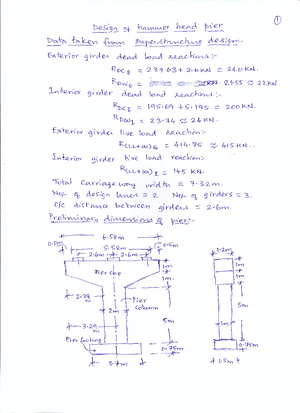 ①
Design of hammer head pier
Data taken from superstructure design:-
Exterior girder dead load reactions:-
R_DC_E = 237.63 + 2.6 KN = 240 KN.
21.55 ≃ 22 KN
Interior girder dead load reactions:-
R_DC_I = 195.69 + 5.195 = 200 KN.
R_DW_I = 23.74 ≃ 24 KN.
Exterior girder live load reaction:-
R(LL+IM)_E = 414.75 ≃ 415 KN.
Interior girder live load reaction:-
R(LL+IM)_I = 145 KN.
Total carriage way width = 7.32 m.
No. of design lanes = 2 No. of girders = 3.
c/c distance between girders = 2.6m.
Preliminary dimensions of pier:-
6.58m
0.5m 5.58m 0.5m 1.2m
2.6m 2.6m
1m 1m
Pier cap
1m. 1m
2.29 m
2m
Pier column
5m 5m
3.29 m
1m
Pier footing
0.75m 0.75m
1.5m